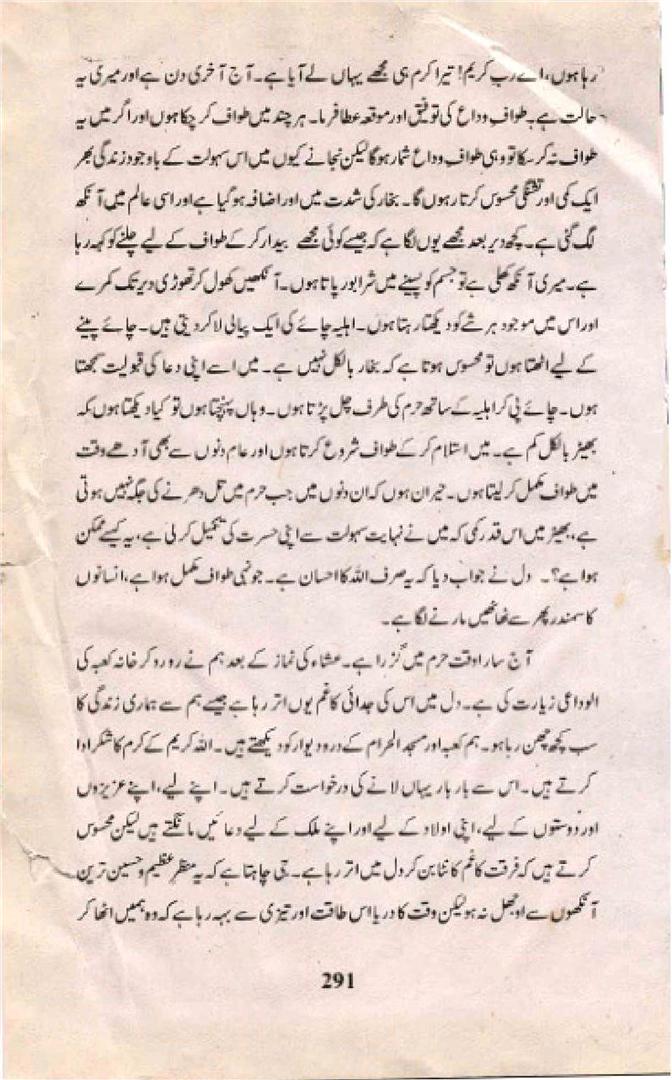 رہا ہوں، اے ربِ کریم! تیرا کرم ہی مجھے یہاں لے آیا ہے۔ آج آخری دن ہے اور میری یہ
حالت ہے۔ طوافِ وداع کی توفیق اور موقعہ عطا فرما۔ ہر چند میں طواف کر چکا ہوں اور اگر میں یہ
طواف نہ کر سکا تو وہی طوافِ وداع شمار ہوگا لیکن نجانے کیوں میں اس سہولت کے باوجود زندگی بھر
ایک کمی اور تشنگی محسوس کرتا رہوں گا۔ بخار کی شدت میں اور اضافہ ہو گیا ہے اور اسی عالم میں آنکھ
لگ گئی ہے۔ کچھ دیر بعد مجھے یوں لگا ہے کہ جیسے کوئی مجھے بیدار کر کے طواف کے لیے چلنے کو کہہ رہا
ہے۔ میری آنکھ کھلی ہے تو جسم کو پسینے میں شرابور پاتا ہوں۔ آنکھیں کھول کر تھوڑی دیر تک کمرے
اور اس میں موجود ہر شے کو دیکھتا رہتا ہوں۔ اہلیہ چائے کی ایک پیالی لا کر دیتی ہیں۔ چائے پینے
کے لیے اٹھتا ہوں تو محسوس ہوتا ہے کہ بخار بالکل نہیں ہے۔ میں اسے اپنی دعا کی قبولیت سمجھتا
ہوں۔ چائے پی کر اہلیہ کے ساتھ حرم کی طرف چل پڑتا ہوں۔ وہاں پہنچتا ہوں تو کیا دیکھتا ہوں کہ
بھیڑ بالکل کم ہے۔ میں استلام کر کے طواف شروع کرتا ہوں اور عام دنوں سے بھی آدھے وقت
میں طواف مکمل کر لیتا ہوں۔ حیران ہوں کہ ان دنوں میں جب حرم میں تل دھرنے کی جگہ نہیں ہوتی
ہے، بھیڑ میں اس قدر کمی کہ میں نے نہایت سہولت سے اپنی حسرت کی تکمیل کر لی ہے، یہ کیسے ممکن
ہوا ہے؟۔ دل نے جواب دیا کہ یہ صرف اللہ کا احسان ہے۔ جونہی طواف مکمل ہوا ہے، انسانوں
کا سمندر پھر سے ٹھاٹھیں مارنے لگا ہے۔
آج سارا وقت حرم میں گزرا ہے۔ عشاء کی نماز کے بعد ہم نے رو رو کر خانہ کعبہ کی
الوداعی زیارت کی ہے۔ دل میں اس کی جدائی کا غم یوں اتر رہا ہے جیسے ہم سے ہماری زندگی کا
سب کچھ چھن رہا ہو۔ ہم کعبہ اور مسجد الحرام کے در و دیوار کو دیکھتے ہیں۔ اللہ کریم کے کرم کا شکر ادا
کرتے ہیں۔ اس سے بار بار یہاں لانے کی درخواست کرتے ہیں۔ اپنے لیے، اپنے عزیزوں
اور دوستوں کے لیے، اپنی اولاد کے لیے اور اپنے ملک کے لیے دعائیں مانگتے ہیں لیکن محسوس
کرتے ہیں کہ فرقت کا غم کانٹا بن کر دل میں اتر رہا ہے۔ جی چاہتا ہے کہ یہ منظرِ عظیم و حسین ترین
آنکھوں سے اوجھل نہ ہو لیکن وقت کا دریا اس طاقت اور تیزی سے بہہ رہا ہے کہ وہ ہمیں اٹھا کر
291